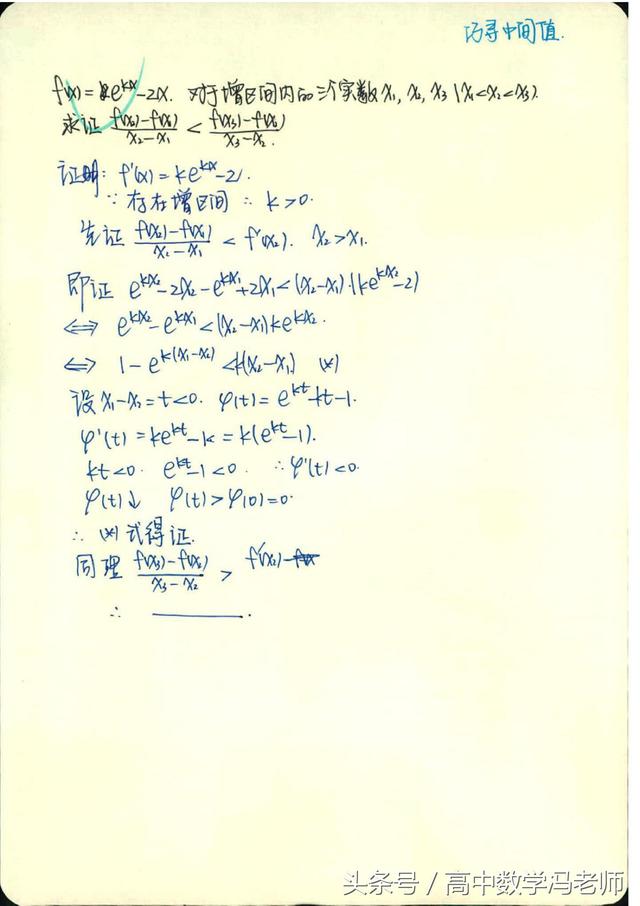 巧寻中间值.
f(x) = e^{kx} - 2x. 对于增区间内的三个实数 x₁, x₂, x₃ (x₁<x₂<x₃).
求证 \frac{f(x₂)-f(x₁)}{x₂-x₁} < \frac{f(x₃)-f(x₂)}{x₃-x₂}.
证明: f'(x) = ke^{kx} - 2.
∵ 存在增区间 ∴ k>0.
先证 \frac{f(x₂)-f(x₁)}{x₂-x₁} < f'(x₂). x₂>x₁.
即证 e^{kx₂}-2x₂-e^{kx₁}+2x₁<(x₂-x₁)·(ke^{kx₂}-2)
⇔ e^{kx₂}-e^{kx₁}<(x₂-x₁)ke^{kx₂}.
⇔ 1-e^{k(x₁-x₂)}<k(x₂-x₁) (*)
设 x₁-x₂=t<0. φ(t)=e^{kt}-kt-1.
φ'(t)=ke^{kt}-k=k(e^{kt}-1).
kt<0. e^{kt}-1<0. ∴φ'(t)<0.
φ(t)↓ φ(t)>φ(0)=0.
∴ (*)式得证.
同理 \frac{f(x₃)-f(x₂)}{x₃-x₂} > f'(x₂)
∴ ———.
头条号 / 高中数学冯老师